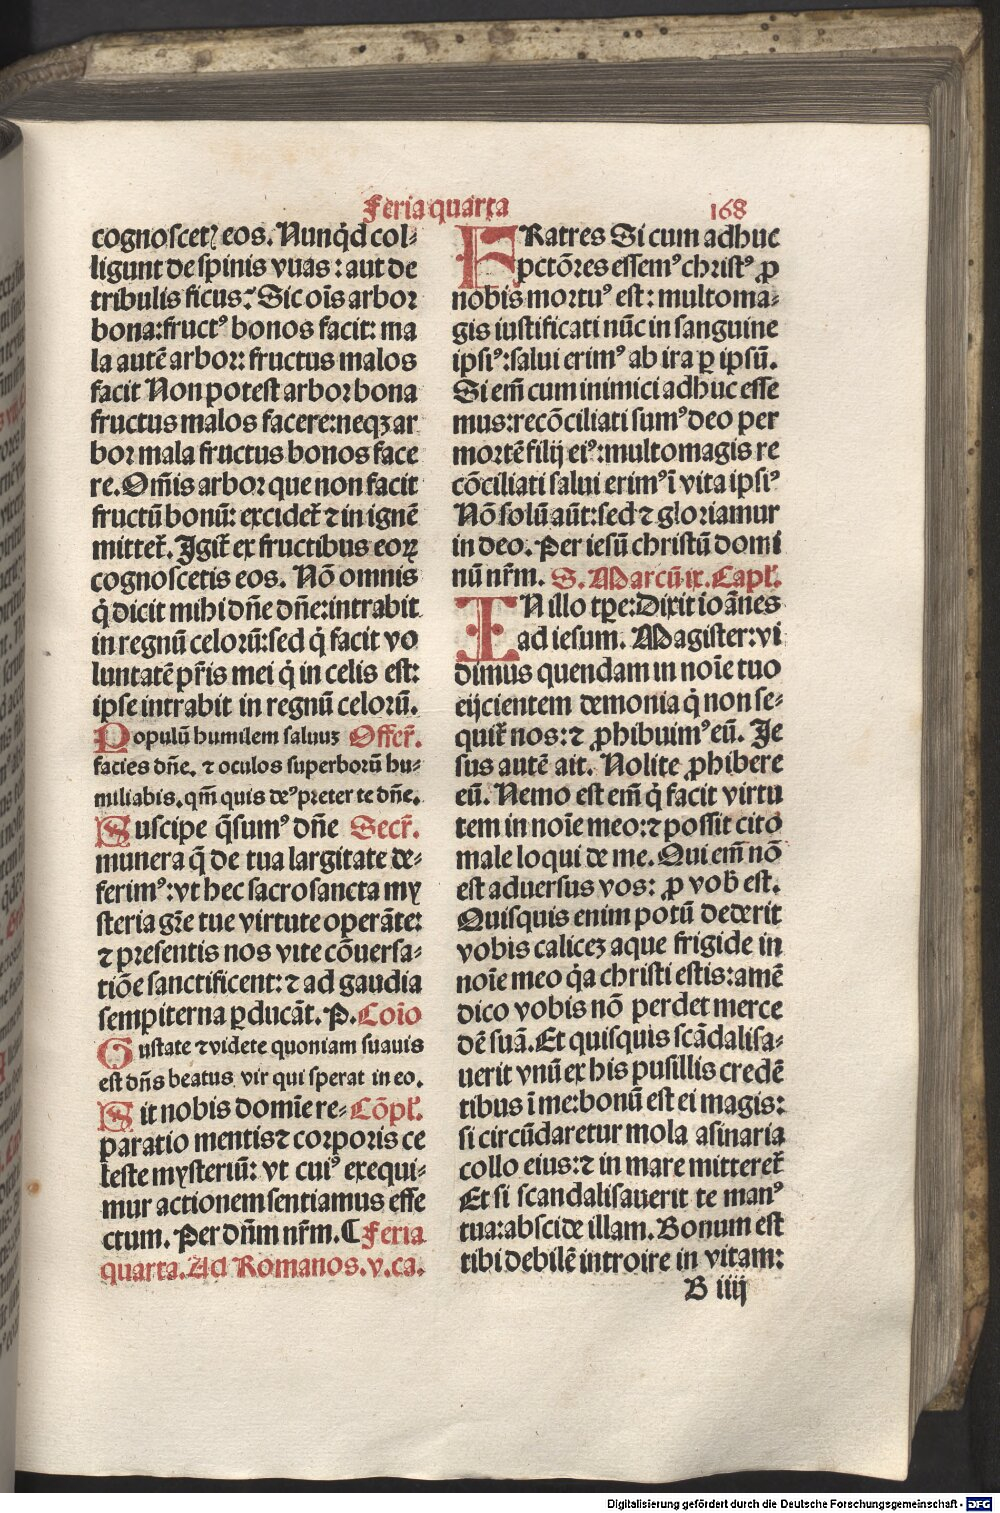 Feria quarta 168
cognoscetꝛ eos. Nunq̇d col⸗
ligunt de spinis vuas : aut de
tribulis ficus. Sic oīs arbor
bona:fructꝰ bonos facit: ma
la autē arbor: fructus malos
facit Non potest arbor bona
fructus malos facere:neqꝫ ar
bor mala fructus bonos face
re. Om̄is arbor que non facit
fructū bonū: excidet᷑ ⁊ in ignē
mittet᷑. Igit᷑ ex fructibus eoꝝ
cognoscetis eos. Nō omnis
q̇ dicit mihi dn̄e dn̄e:intrabit
in regnū celorū:sed q̇ facit vo
luntatē pr̄is mei q̇ in celis est:
ipse intrabit in regnū celorū.
Populū humilem saluuꝫ Offer᷑.
facies dn̄e. ⁊ oculos superborū hu⸗
miliabis. qm̄ quis deꝰ preter te dn̄e.
Suscipe q̄sumꝰ dn̄e Secr᷑.
munera q̄ de tua largitate de⸗
ferimꝰ:vt hec sacrosancta my
steria gr̄e tue virtute operāte:
⁊ presentis nos vite cōuersa⸗
tiōe sanctificent:⁊ ad gaudia
sempiterna ꝑducāt. P. Cōio
Gustate ⁊ videte quoniam suauis
est dn̄s beatus vir qui sperat in eo.
Sit nobis domīe re⸗ Cōpl᷑.
paratio mentis⁊ corporis ce
leste mysteriū: vt cuiꝰ exequi⸗
mur actionem sentiamus effe
ctum. Per dn̄m nr̄m. ¶ Feria
quarta. Ad Romanos. v. ca.
FRatres Si cum adhuc
pctōres essemꝰ christꝰ ꝓ
nobis mortuꝰ est: multo ma⸗
gis iustificati nūc in sanguine
ipsiꝰ:salui erimꝰ ab ira ꝑ ipsū.
Si em̄ cum inimici adhuc esse
mus:recōciliati sumꝰ deo per
mortē filij eiꝰ:multo magis re
cōciliati salui erimꝰ ī vita ipsiꝰ
Nō solū aūt:sed ⁊ gloriamur
in deo. Per iesū christū domi
nū nr̄m. S. Marcū ix. Capl᷑.
IN illo tꝑe:Dixit ioānes
ad iesum. Magister:vi
dimus quendam in noīe tuo
eijcientem demonia q̇ non se⸗
quit᷑ nos:⁊ ꝓhibuimꝰ eū. Je
sus autē ait. Nolite ꝓhibere
eū. Nemo est em̄ q̇ facit virtu
tem in noīe meo:⁊ possit cito
male loqui de me. Qui em̄ nō
est aduersus vos: ꝓ vob̄ est.
Quisquis enim potū dederit
vobis caliceꝫ aque frigide in
noīe meo q̇a christi estis:amē
dico vobis nō perdet merce
dē suā. Et quisquis scādalisa⸗
uerit vnū ex his pusillis credē
tibus ī me:bonū est ei magis:
si circūdaretur mola asinaria
collo eius:⁊ in mare mitteret᷑
Et si scandalisauerit te manꝰ
tua:abscide illam. Bonum est
tibi debilē introire in vitam:
B iiij
Digitalisierung gefördert durch die Deutsche Forschungsgemeinschaft - DFG